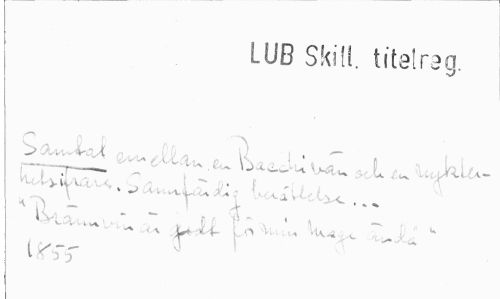 LUB Skill. titelreg.
Samtal emellan en Bacchi vän och en nykter-
hetsifrare. Sannfärdig berättelse...
"Brännvin är godt för min mage ändå"
1855